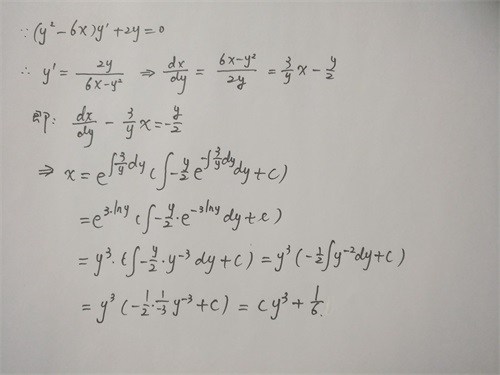 ∵ (y²-6x)y'+2y=0
∴ y' = 2y/(6x-y²) ⇒ dx/dy = (6x-y²)/2y = 3/y x - y/2
即: dx/dy - 3/y x = -y/2
⇒ x = e^(∫3/y dy) (∫-y/2 e^(-∫3/y dy) dy + C)
= e^(3·lny) (∫-y/2 · e^(-3lny) dy + c)
= y³·(∫-y/2 · y⁻³ dy + C) = y³(-1/2 ∫y⁻² dy + C)
= y³(-1/2 · 1/-3 y⁻³ + C) = Cy³ + 1/6.